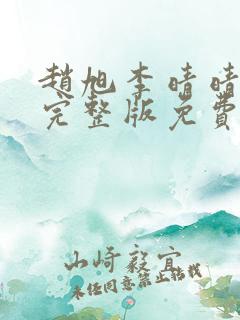 趙旭李晴晴
完整版免費
山崎毅宜
未经同意禁止转载